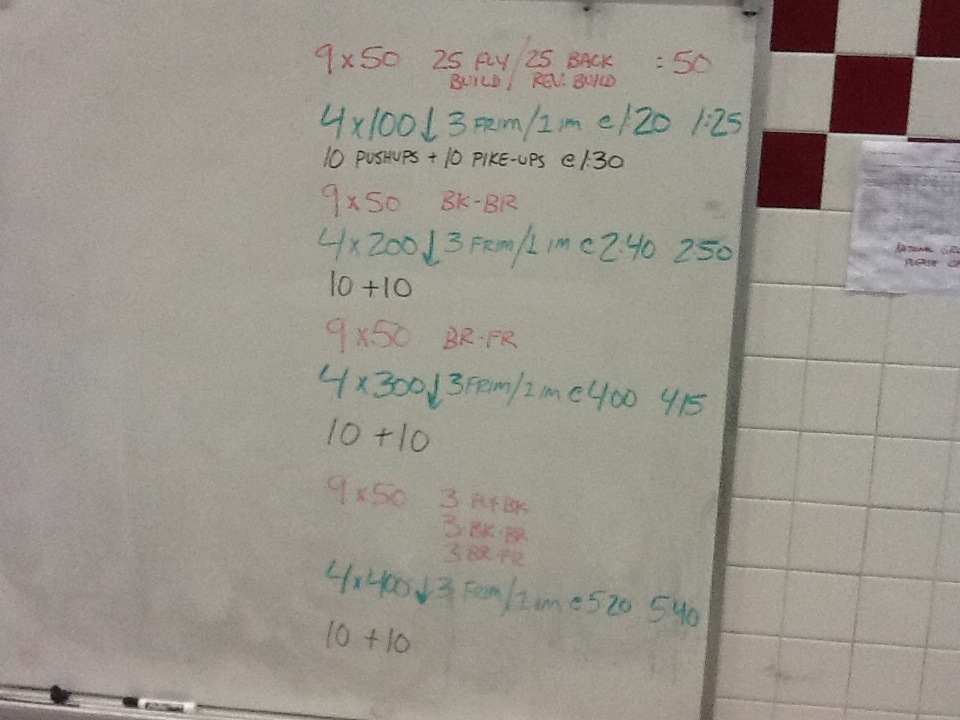 9x50 25 FLY/25 BACK :50
BUILD/ REV. BUILD
4x100↓ 3 FRIM/1 IM @ 1:20 1:25
10 PUSHUPS + 10 PIKE-UPS @ 1:30
9x50 BK-BR
4x200↓ 3 FRIM/1 IM @ 2:40 2:50
10 +10
9x50 BR-FR
4x300↓ 3 FRIM/1 IM @ 400 415
10 +10
9x50 3 FLY-BK
3 BK-BR
3 BR-FR
4x400↓ 3 FRIM/1 IM @ 520 540
10 +10
PLEASE